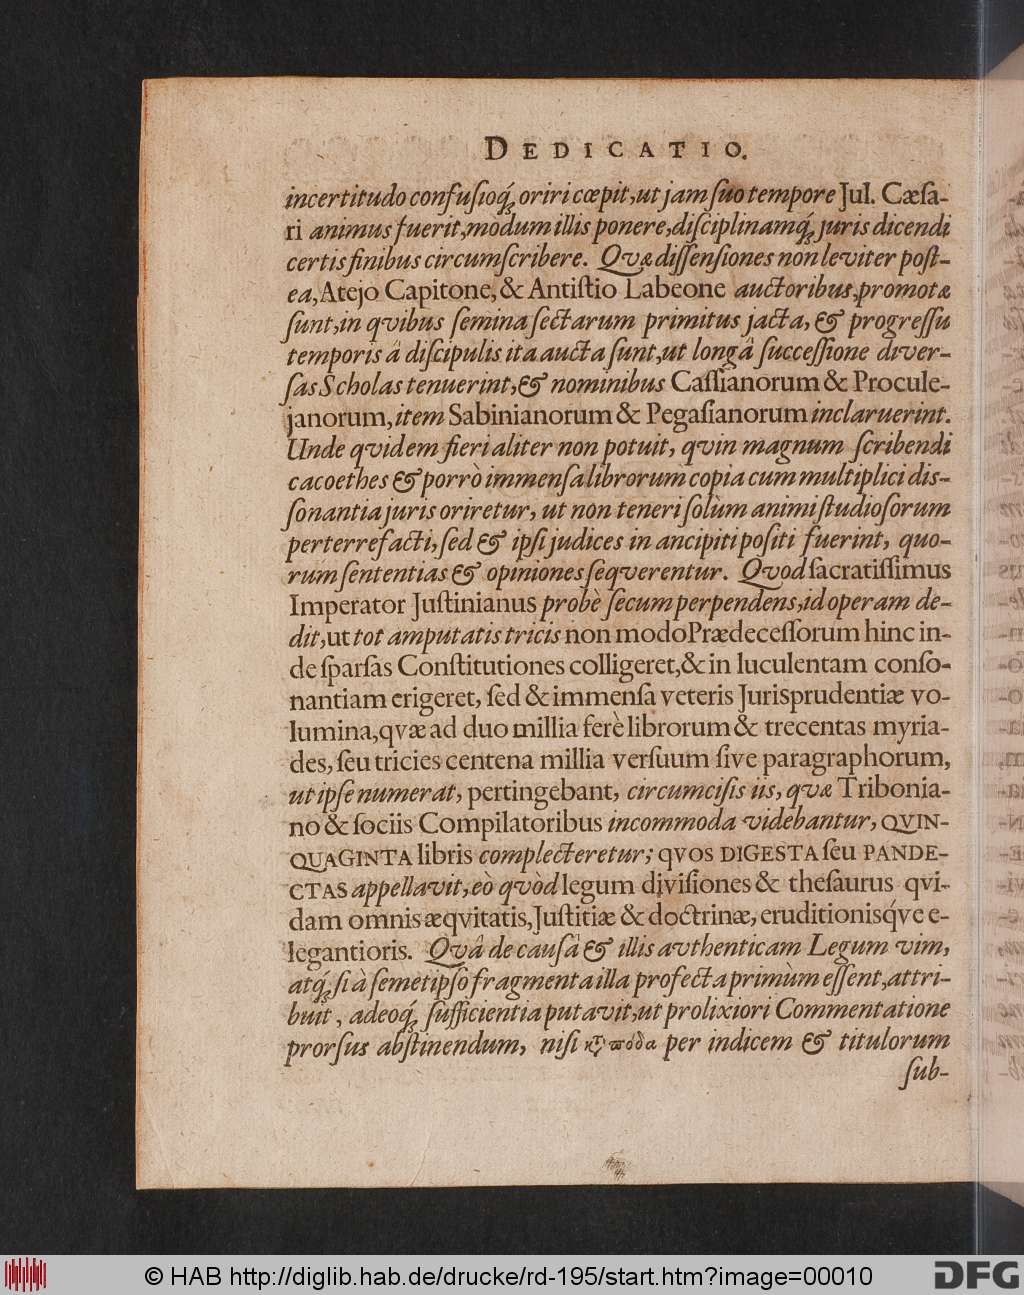 DEDICATIO.
incertitudo confuſioq́; oriri cœpit, ut jam ſuo tempore Jul. Cæſa-
ri animus fuerit, modum illis ponere, diſciplinamq́; juris dicendi
certis finibus circumſcribere. Qvæ diſſenſiones non leviter poſt-
ea, Atejo Capitone, & Antiſtio Labeone auctoribus, promotæ
ſunt, in qvibus ſemina ſectarum primitus jacta, & progreſſu
temporis â diſcipulis ita aucta ſunt, ut longâ ſucceſſione diver-
ſas Scholas tenuerint, & nominibus Caſſianorum & Procule-
janorum, item Sabinianorum & Pegaſianorum inclaruerint.
Unde qvidem fieri aliter non potuit, qvin magnum ſcribendi
cacoethes & porrò immenſa librorum copia cum multiplici dis-
ſonantia juris oriretur, ut non teneri ſolùm animi ſtudioſorum
perterrefacti, ſed & ipſi judices in ancipiti poſiti fuerint, quo-
rum ſententias & opiniones ſeqverentur. Qvod ſacratiſſimus
Imperator Juſtinianus probè ſecum perpendens, id operam de-
dit, ut tot amputatis tricis non modo Prædeceſſorum hinc in-
de ſparſas Conſtitutiones colligeret, & in luculentam conſo-
nantiam erigeret, ſed & immenſa veteris Jurisprudentiæ vo-
lumina, qvæ ad duo millia ferè librorum & trecentas myria-
des, ſeu tricies centena millia verſuum ſive paragraphorum,
ut ipſe numerat, pertingebant, circumciſis iis, qvæ Tribonia-
no & ſociis Compilatoribus incommoda videbantur, QVIN-
QUAGINTA libris complecteretur; qvos DIGESTA ſeu PANDE-
CTAS appellavit, eò qvòd legum diviſiones & theſaurus qvi-
dam omnis æqvitatis, Juſtitiæ & doctrinæ, eruditionisq́ve e-
legantioris. Qvâ de cauſâ & illis avthenticam Legum vim,
atq́; ſi à ſemetipſo fragmenta illa profecta primùm eſſent, attri-
buit, adeoq́; ſufficientia putavit, ut prolixiori Commentatione
prorſus abſtinendum, niſi κτ πόδα per indicem & titulorum
ſub-
© HAB http://diglib.hab.de/drucke/rd-195/start.htm?image=00010
DFG